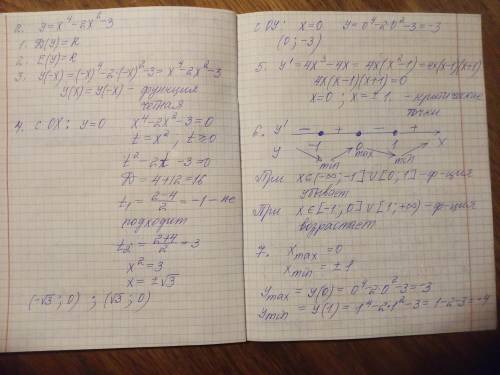 2. y = x⁴ - 2x² - 3
1. D(y) = R
2. E(y) = R
3. y(-x) = (-x)⁴ - 2·(-x)² - 3 = x⁴ - 2x² - 3
y(x) = y(-x) - функция
чётная
4. С OX: y = 0 x⁴ - 2x² - 3 = 0
t = x², t ≥ 0
t² - 2t - 3 = 0
D = 4 + 12 = 16
t₁ = (2-4)/2 = -1 - не
подходит
t₂ = (2+4)/2 = 3
x² = 3
x = ±√3
(-√3; 0) ; (√3; 0)
С OY: x = 0 y = 0⁴ - 2·0² - 3 = -3
(0; -3)
5. y' = 4x³ - 4x = 4x(x² - 1) = 4x(x-1)(x+1)
4x(x-1)(x+1) = 0
x = 0; x = ±1. - критические
точки
6. y' - + - +
-1 0 1 x
y min max min
При x∈(-∞; -1]∪[0; 1] - ф-ция
убывает
При x∈[-1; 0]∪[1; +∞) - ф-ция
возрастает
7. x max = 0
x min = ±1
y max = y(0) = 0⁴ - 2·0² - 3 = -3
y min = y(1) = 1⁴ - 2·1² - 3 = 1 - 2 - 3 = -4